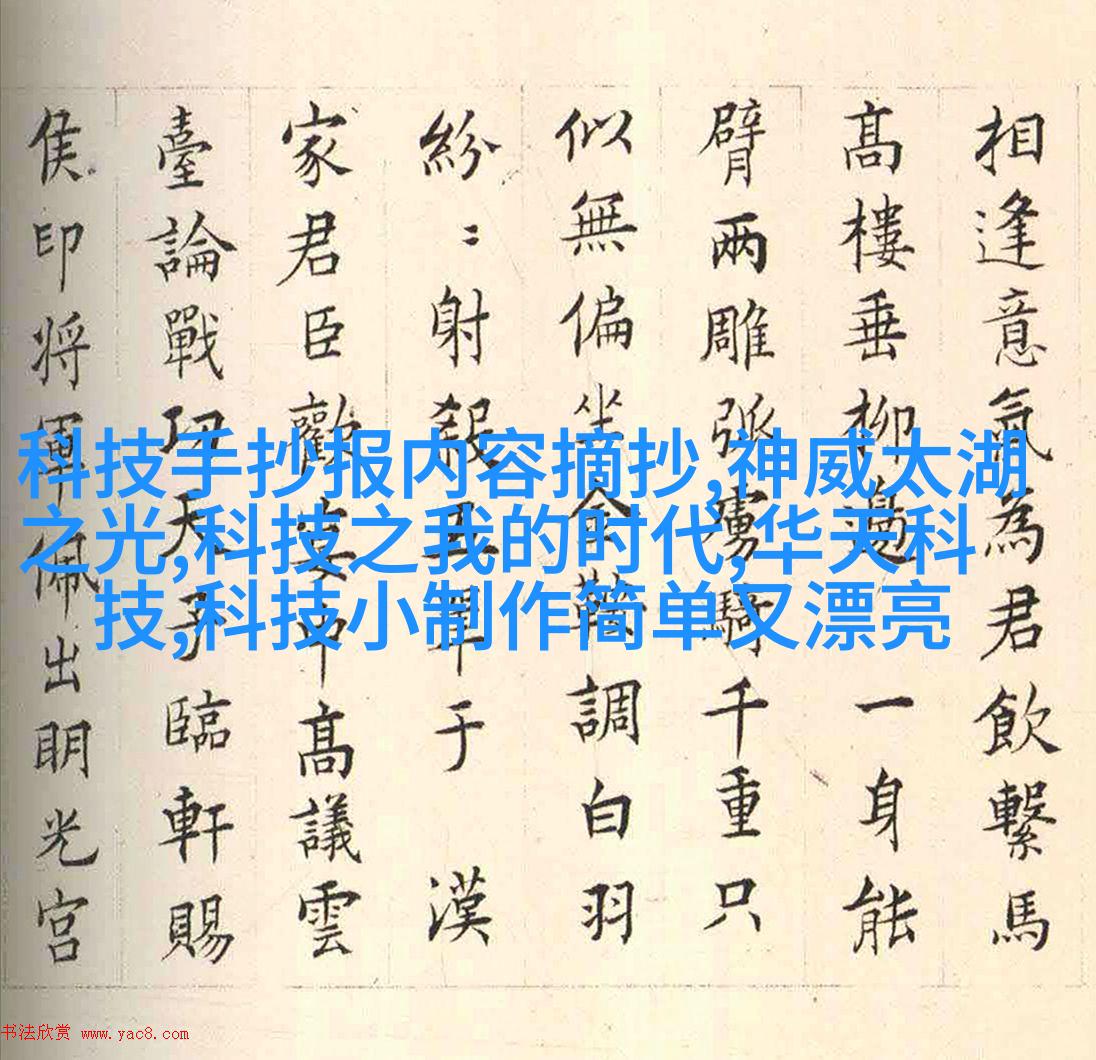 相逢意氣為君飲繫馬
髙樓垂柳邊一身能
臂兩雕弧虜騎千重只
似無偏坐金鞍調白羽
紛〻射殺五單于漢
家君臣歡宴中髙議雲
臺論戰功天子臨軒賜
侯印将軍佩出明光宮
科技手抄报内容摘抄,神威太湖
之光,科技之我的时代,华天科
技,科技小制作简单又漂亮
书法欣赏 www.yac8.com